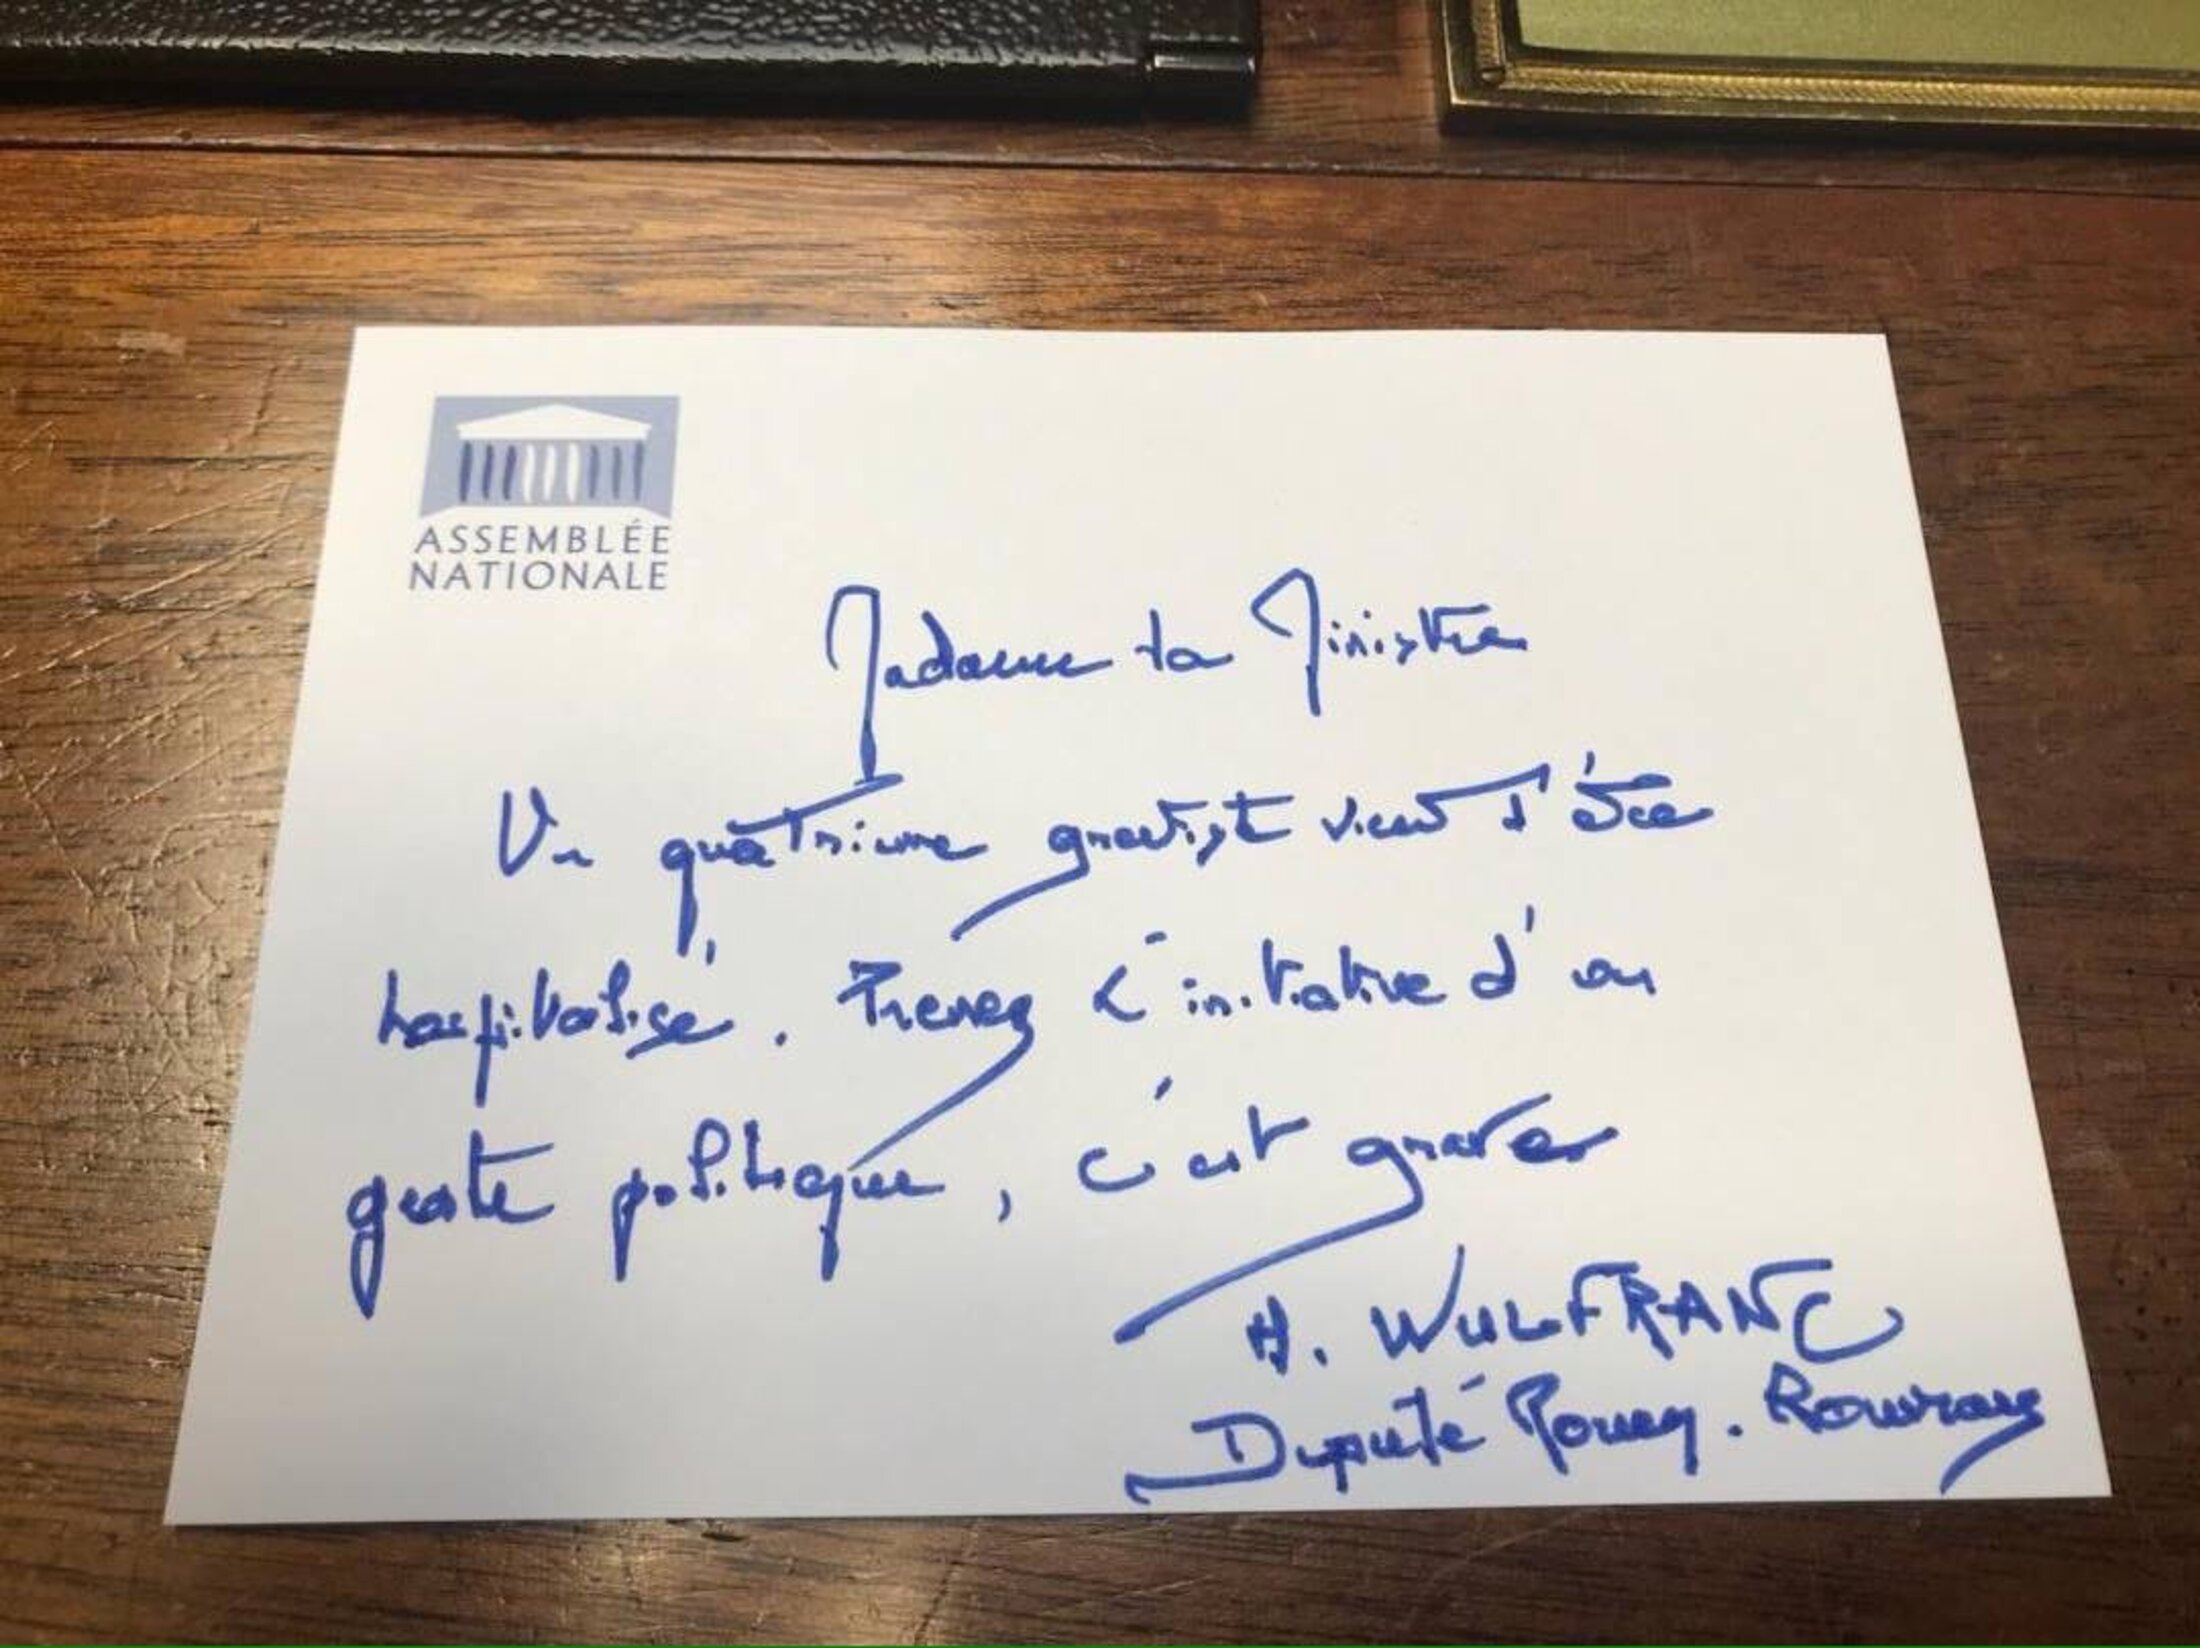 ASSEMBLÉE
NATIONALE
Madame la Ministre
Un quatrième gréviste vient d'être
hospitalisé. Prenez l'initiative d'un
geste politique, c'est grave
H. WULFRANC
Député Rouen. Rouvray